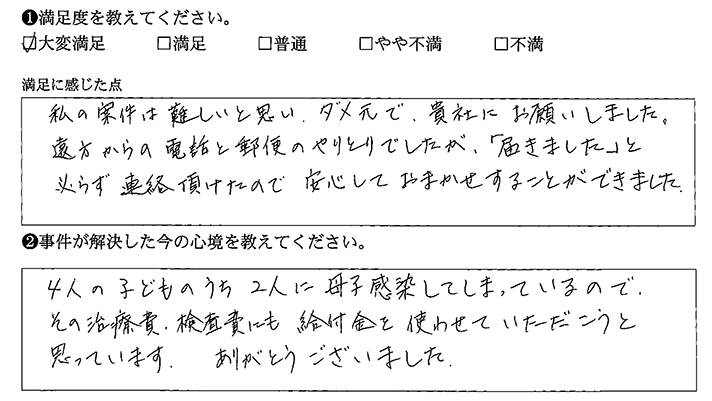 ❶満足度を教えてください。
☑大変満足 □満足 □普通 □やや不満 □不満
満足に感じた点
私の案件は難しいと思い、ダメ元で、貴社にお願いしました。
遠方からの電話と郵便のやりとりでしたが、「届きました」と
必らず連絡頂けたので安心しておまかせすることができました。
❷事件が解決した今の心境を教えてください。
4人の子どものうち2人に母子感染してしまっているので、
その治療費、検査費にも給付金を使わせていただこうと
思っています。ありがとうございました。